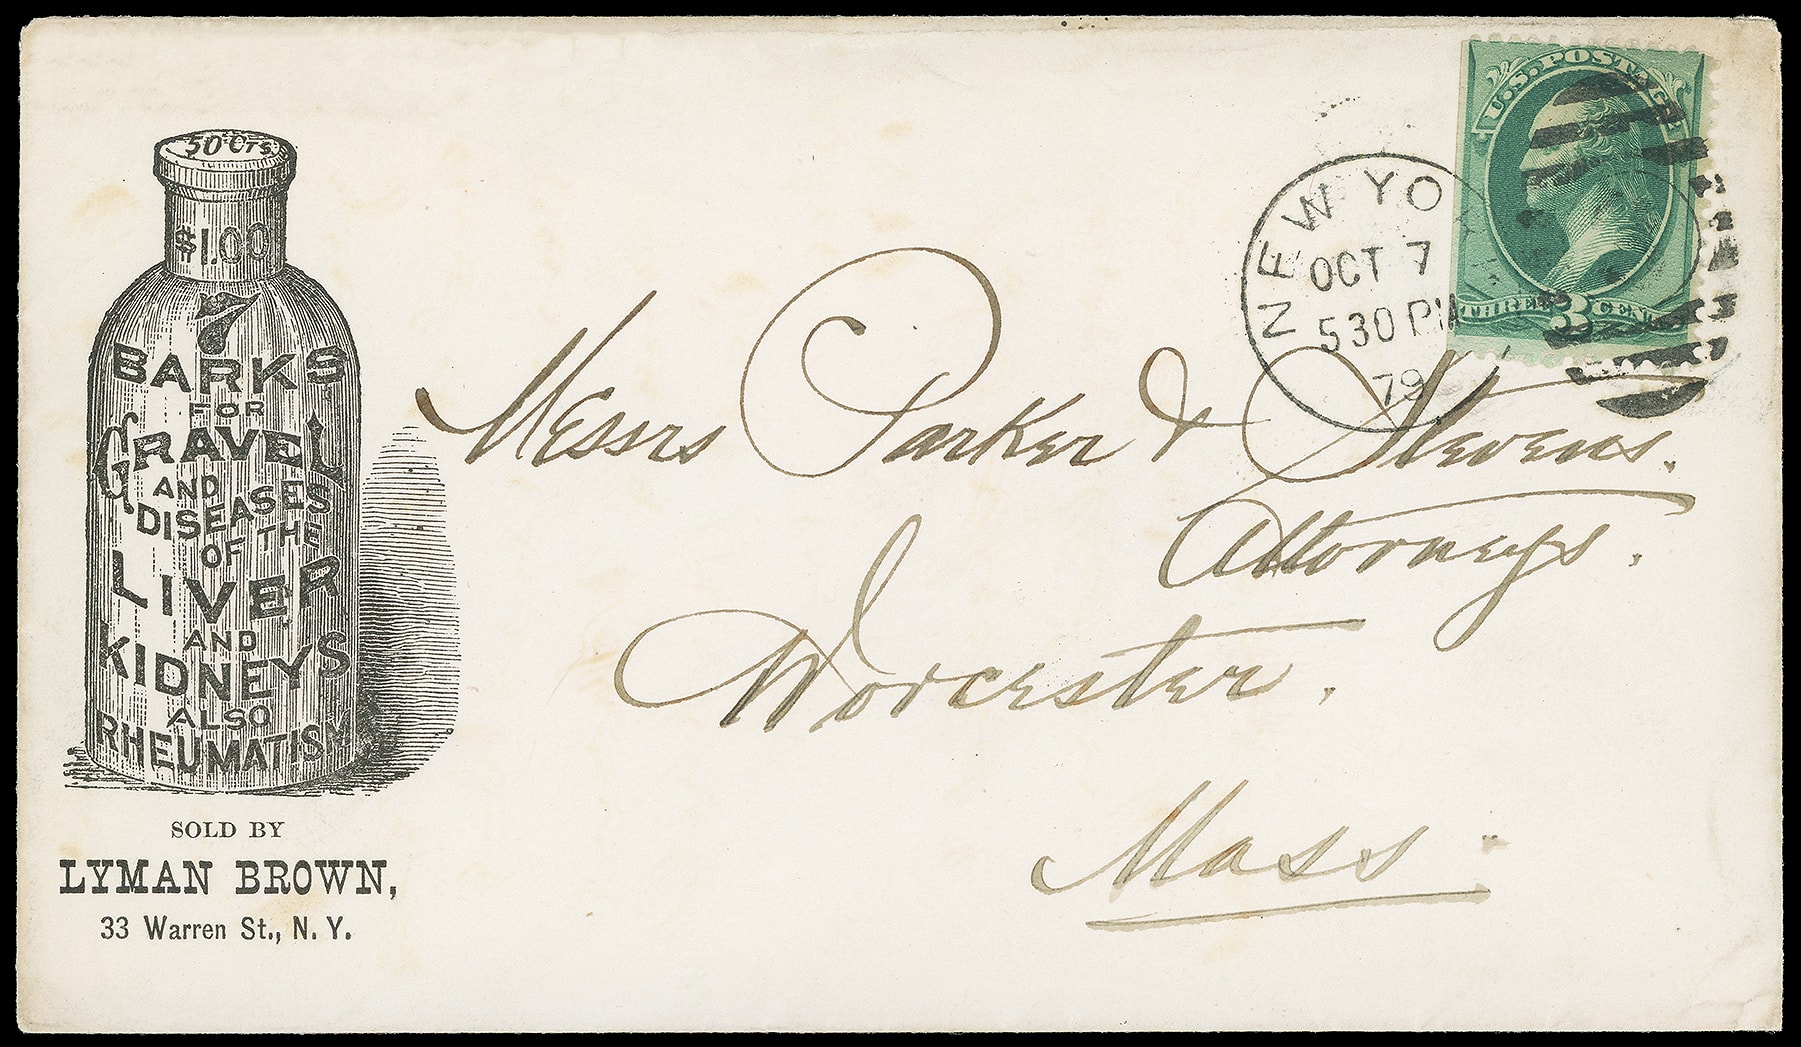 50 CTS.
$1.00
7
BARKS
FOR
GRAVEL
AND
DISEASES
OF THE
LIVER
AND
KIDNEYS
ALSO
RHEUMATISM
SOLD BY
LYMAN BROWN,
33 Warren St., N. Y.
U.S. POSTAGE
THREE 3 CENTS
NEW YO
OCT 7
530 PM
79
Messrs Parker & Stevens.
Attorneys.
Worcester.
Mass.